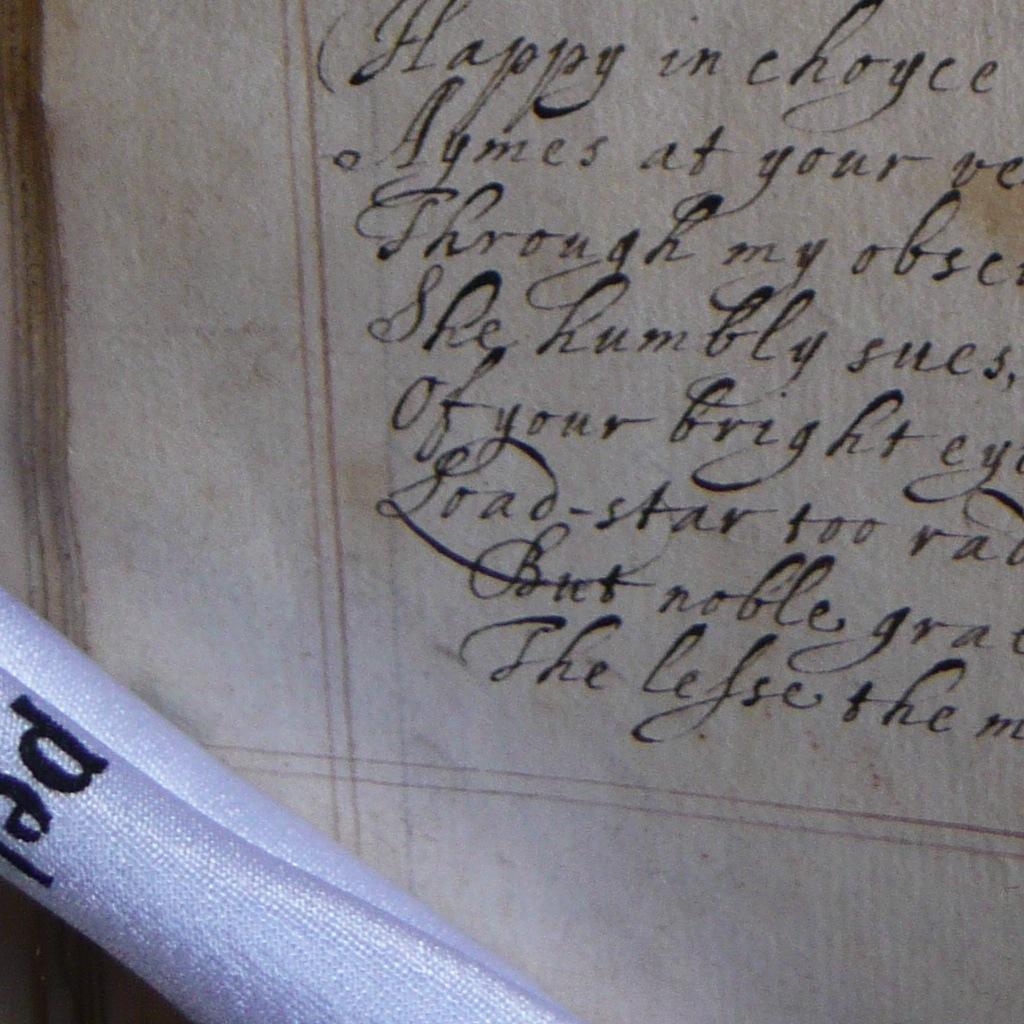 Happy in choyce
Aymes at your
Through my
She humbly sues,
Of your bright
Load-star too
But noble
The leſse the